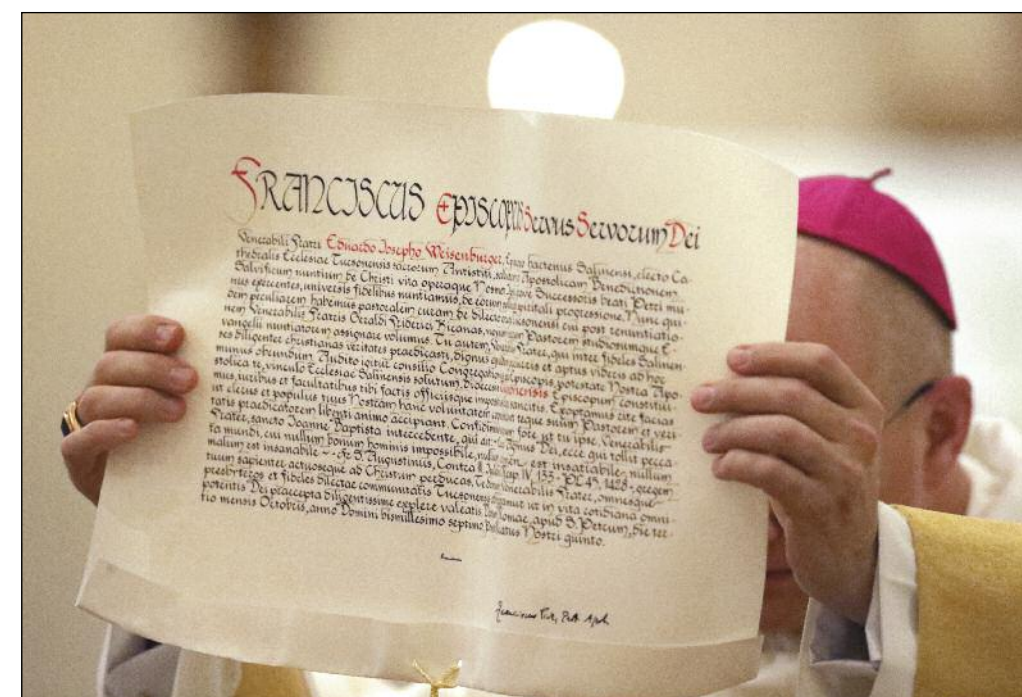 FRANCISCUS EPISCOPUS Servus Servorum Dei
Venerabili Fratri Eduardo Josepho Weisenburger, hactenus Salinensi, electo Ca-
thedralis Ecclesiae Tucsonensis sacrorum Antistiti, salutem Apostolicam Benedictionem.
Salvificum nuntium de Christi vita operaque Nos Successoris beati Petri mu-
nus exercentes, universis fidelibus nuntiamus, de eorum spiritali progressione. Nunc qui-
dem peculiarem habemus pastoralem curam de dilecta cui post renuntiatio-
nem Venerabilis Fratris Geraldi Friderici Kicanas, Pastorem studiosumque E-
vangelii nuntiatorem assignare volumus. Tu autem, Frater, qui inter fideles Salinen-
ses diligenter christianas veritates praedicasti, dignus et aptus videris ad hoc
munus obeundum. Audito igitur consilio Congregationis Episcopis, potestate Nostra Apo-
stolica te, vinculo Ecclesiae Salinensis solutum, Episcopum constitui-
mus, iuribus et facultatibus tibi factis officiisque Exoptamus rite facias
ut clerus et populus tuus Nostram hanc voluntatem teque suum Pastorem et veri-
tatis praedicatorem libenti animo accipiant. Confidimus fore ut tu ipse, Venerabilis
Frater, sancto Joanne Baptista intercedente, qui Agnus Dei, ecce qui tollit pecca-
ta mundi, cui nullum bonum hominis impossibile, est insatiabile, nullum
malum est insanabile - cfr S. Augustinus, Contra IV, 133 - PL 45, 1428 -, gregem
tuum sapienter actuoseque ad Christum perducas. Te Venerabilis Frater, omnesque
presbyteros et fideles dilectae communitatis Tucsonensis ut in vita cotidiana omni-
potentis Dei praecepta diligentissime explere valeatis. Romae, apud S. Petrum, die ter-
tio mensis Octobris, anno Domini bismillesimo septimo Nostri quinto.
Franciscus